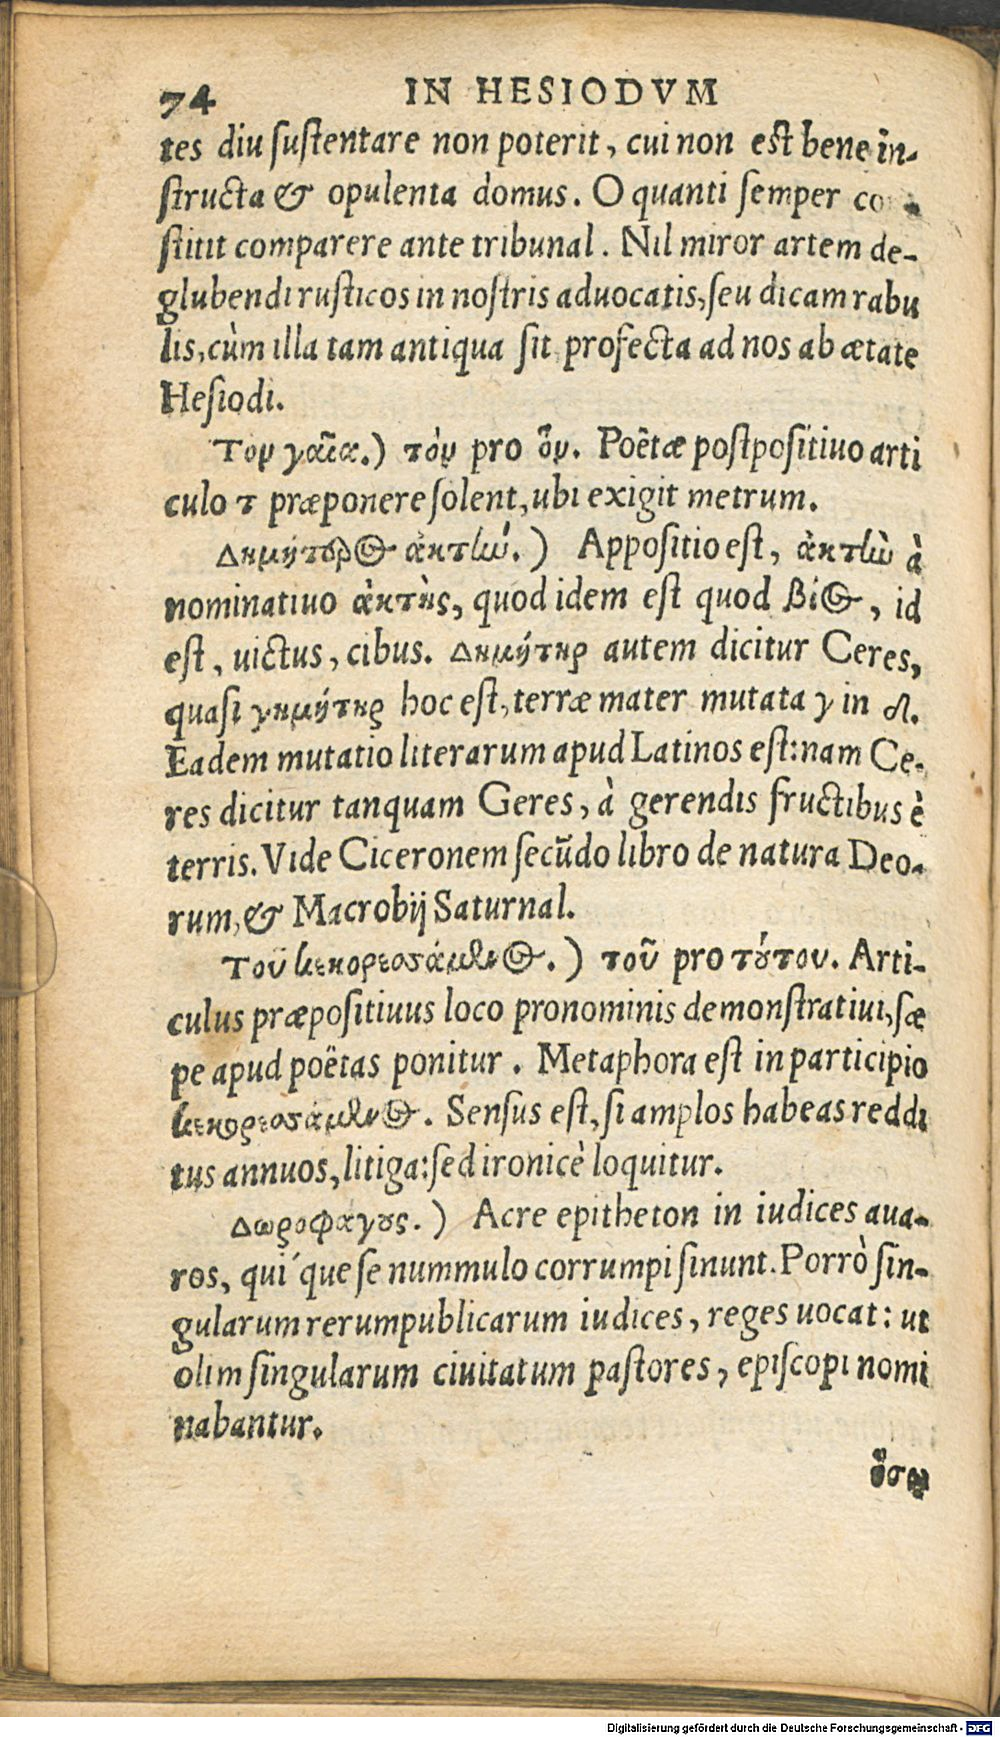 74 IN HESIODVM
tes diu sustentare non poterit, cui non est bene in-
structa & opulenta domus. O quanti semper
stitit comparere ante tribunal. Nil miror artem de-
glubendi rusticos in nostris aduocatis, seu dicam rabu
lis, cùm illa tam antiqua sit profecta ad nos ab ætate
Hesiodi.
Τον γαῖα.) τὸν pro ὃν. Poëtæ postpositiuo arti
culo τ præponere solent, ubi exigit metrum.
Δημήτερος ἀκτὼ.) Appositio est, ἀκτὼ à
nominatiuo ἀκτὴς, quod idem est quod βίος, id
est, uictus, cibus. Δημήτηρ autem dicitur Ceres,
quasi γημήτηρ hoc est, terræ mater mutata γ in δ.
Eadem mutatio literarum apud Latinos est: nam Ce-
res dicitur tanquam Geres, à gerendis fructibus è
terris. Vide Ciceronem secūdo libro de natura Deo-
rum, & Macrobij Saturnal.
Τοῦ κεκορεσάμενος.) τοῦ pro τούτου. Arti-
culus præpositiuus loco pronominis demonstratiui, sæ
pe apud poëtas ponitur. Metaphora est in participio
κεκορεσάμενος. Sensus est, si amplos habeas reddi
tus annuos, litiga: sed ironicè loquitur.
Δωροφάγους.) Acre epitheton in iudices aua-
ros, qui´que se nummulo corrumpi sinunt. Porrò sin-
gularum rerumpublicarum iudices, reges uocat: ut
olim singularum ciuitatum pastores, episcopi nomi
nabantur.
ὅσῳ
Digitalisierung gefördert durch die Deutsche Forschungsgemeinschaft - DFG